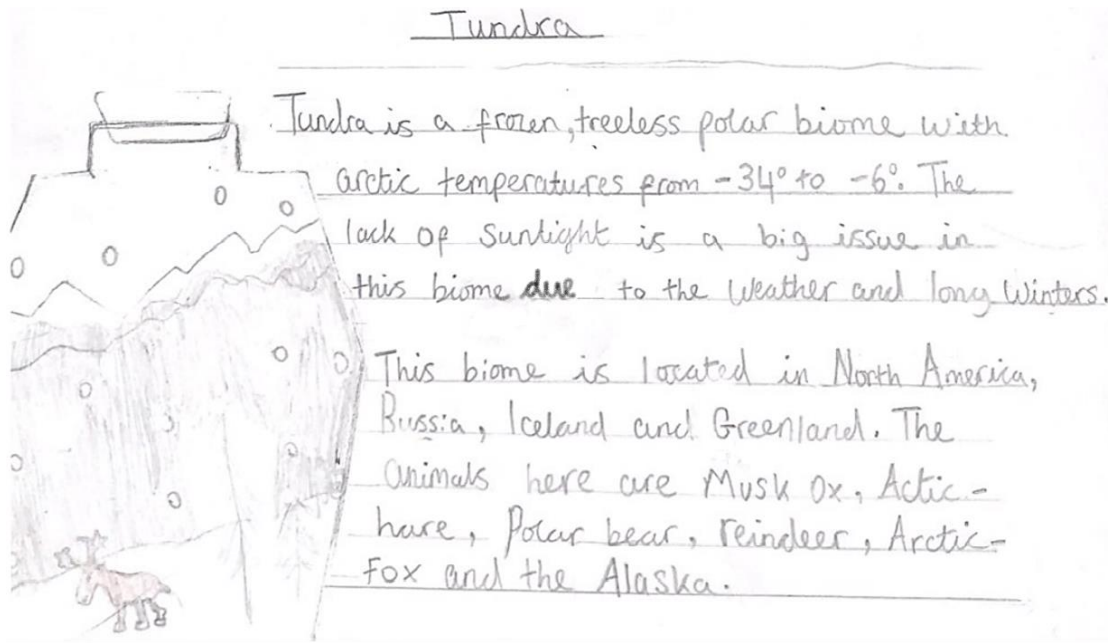 Tundra
Tundra is a frozen, treeless polar biome with
arctic temperatures from -34° to -6°. The
lack of Sunlight is a big issue in
this biome due to the Weather and long Winters.
This biome is located in North America,
Russia, Iceland and Greenland. The
animals here are Musk Ox, Actic-
hare, Polar bear, reindeer, Arctic-
Fox and the Alaska.